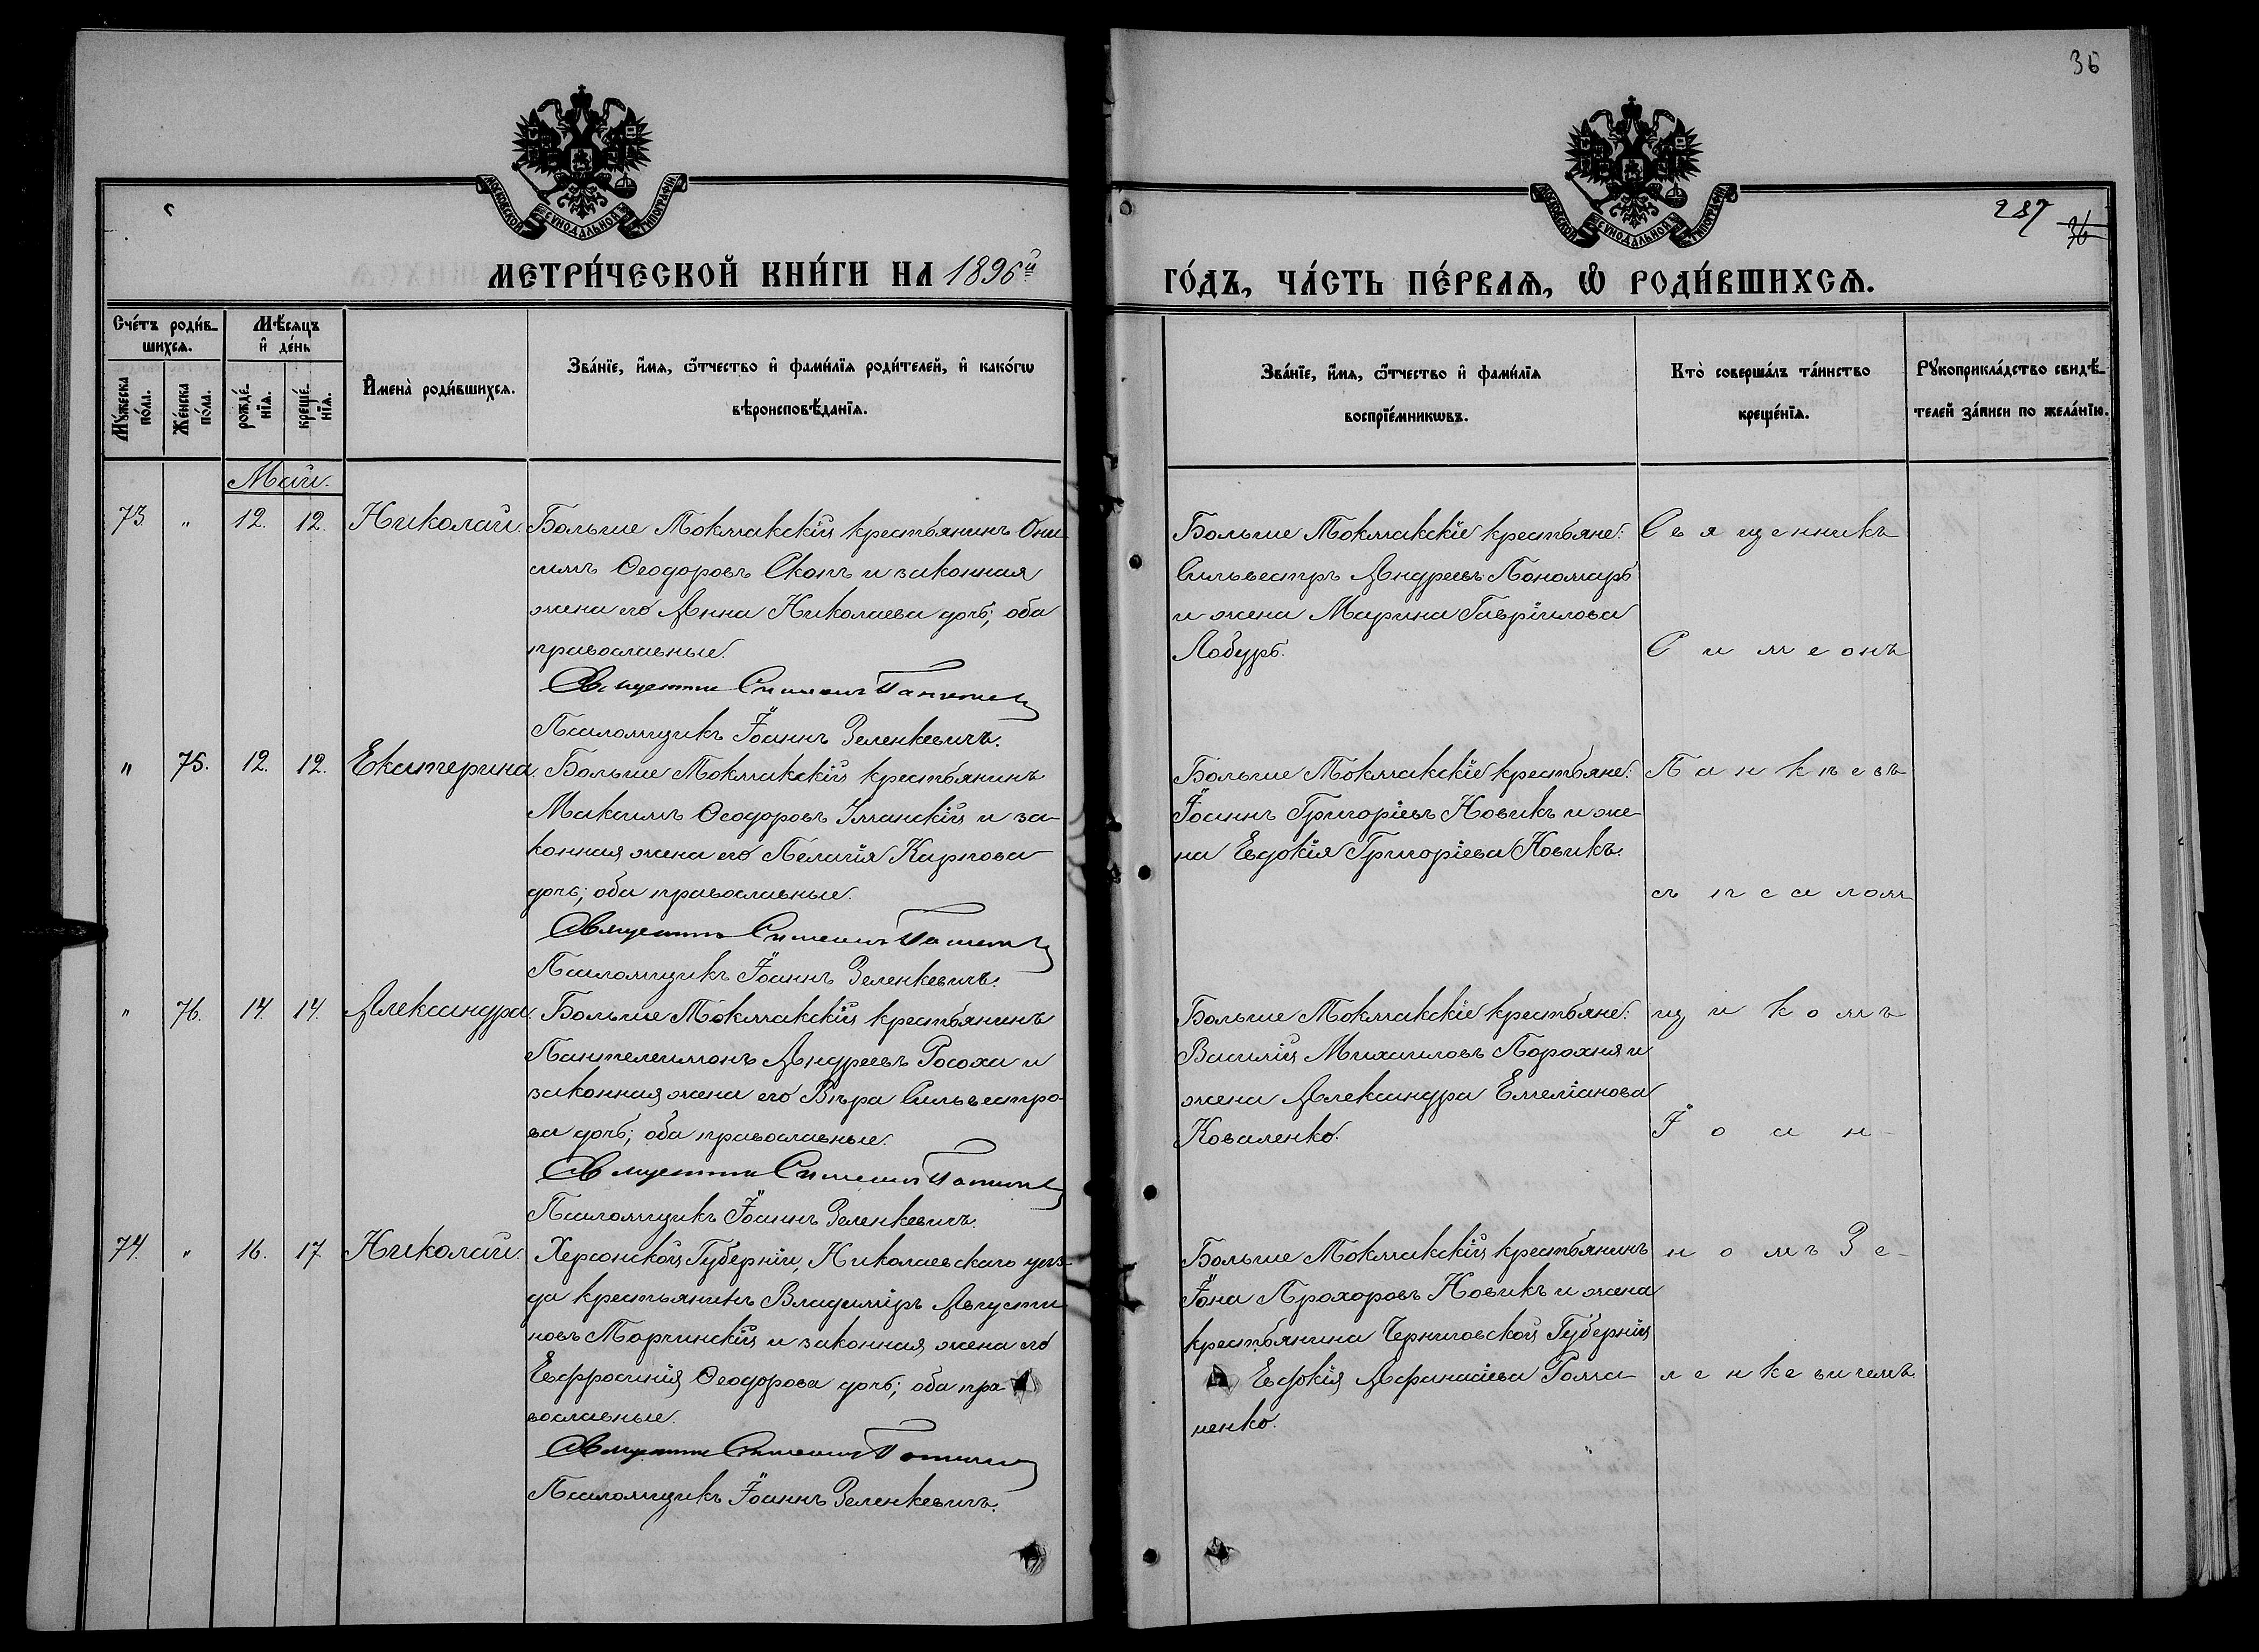 36
МОСКОВСКОЙ СУНОДАЛЬНОЙ ТИПОГРАФІИ
МОСКОВСКОЙ СУНОДАЛЬНОЙ ТИПОГРАФІИ
287 36
МЕТРИ́ЧЕСКОЙ КНИ́ГИ НА 1896й
ГО́ДЪ, ЧА́СТЬ ПЕ́РВАѦ, Ѡ҆ РОДИ́ВШИХСѦ.
Сче́тъ роди́в-
шихсѧ.
Мѣ́сѧцъ
и҆ де́нь
Мꙋ́жеска
по́ла.
Же́нска
по́ла.
рожде́-
нїѧ.
креще́-
нїѧ.
И҆мена̀ роди́вшихсѧ.
Зва́нїе, и҆́мѧ, ѻ҆́тчество и҆ фами́лїѧ роди́телей, и҆ како́гѡ
вѣроисповѣ́данїѧ.
Зва́нїе, и҆́мѧ, ѻ҆́тчество и҆ фами́лїѧ
воспрїе́мникѡвъ.
Кто̀ соверша́лъ та́инство
креще́нїѧ.
Рꙋкоприкла́дство свидѣ́-
телей за́писи по жела́нїю.
Май.
73. " 12. 12. Николай.
Больше Токмакскій крестьянинъ Они
симъ Ѳеодоровъ Скопъ и законная
жена его Анна Николаева дочь; оба
православные.
Священникъ Симеонъ
Псаломщикъ Іоаннъ Зеленкевичъ.
Больше Токмакскіе крестьяне:
Сильвестръ Андреевъ Пономарь
и жена Марина Гавріилова
Лобуръ.
Священникъ
Симеонъ
" 75. 12. 12. Екатерина.
Больше Токмакскій крестьянинъ
Максимъ Ѳеодоровъ Уманскій и за-
конная жена его Пелагія Карпова
дочь; оба православные.
Священникъ Симеонъ
Псаломщикъ Іоаннъ Зеленкевичъ.
Больше Токмакскіе крестьяне:
Іоаннъ Григоріевъ Новикъ и же-
на Евдокія Григоріева Новикъ.
Панкѣевъ
съ псалом
" 76. 14. 14. Александра.
Больше Токмакскій крестьянинъ
Пантелеимонъ Андреевъ Росоха и
законная жена его Вѣра Сильвестро-
ва дочь; оба православные.
Священникъ Симеонъ
Псаломщикъ Іоаннъ Зеленкевичъ.
Больше Токмакскіе крестьяне:
Василій Михаиловъ Порохня и
жена Александра Емеліанова
Коваленко.
щикомъ
Іоан-
74. " 16. 17. Николай.
Херсонской Губерніи, Николаевскаго уѣз-
да крестьянинъ Владиміръ Августи
новъ Торчинскій и законная жена его
Евфросинія Ѳеодорова дочь; оба пра
вославные.
Священникъ Симеонъ
Псаломщикъ Іоаннъ Зеленкевичъ.
Больше Токмакскій крестьянинъ
Іона Прохоровъ Новикъ и жена
крестьянина Черниговской Губерніи
Евдокія Афанасіева Рома
ненко.
номъ Зе-
ленкевичемъ.